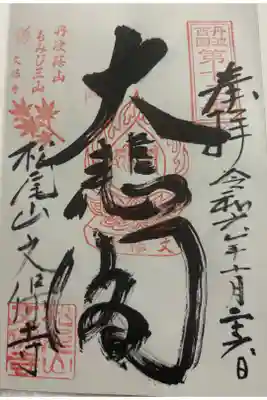 奉拝 令和六年十一月 日
大悲閣
松尾山文保寺
丹波篠山
もみぢ三山
文保寺
第十